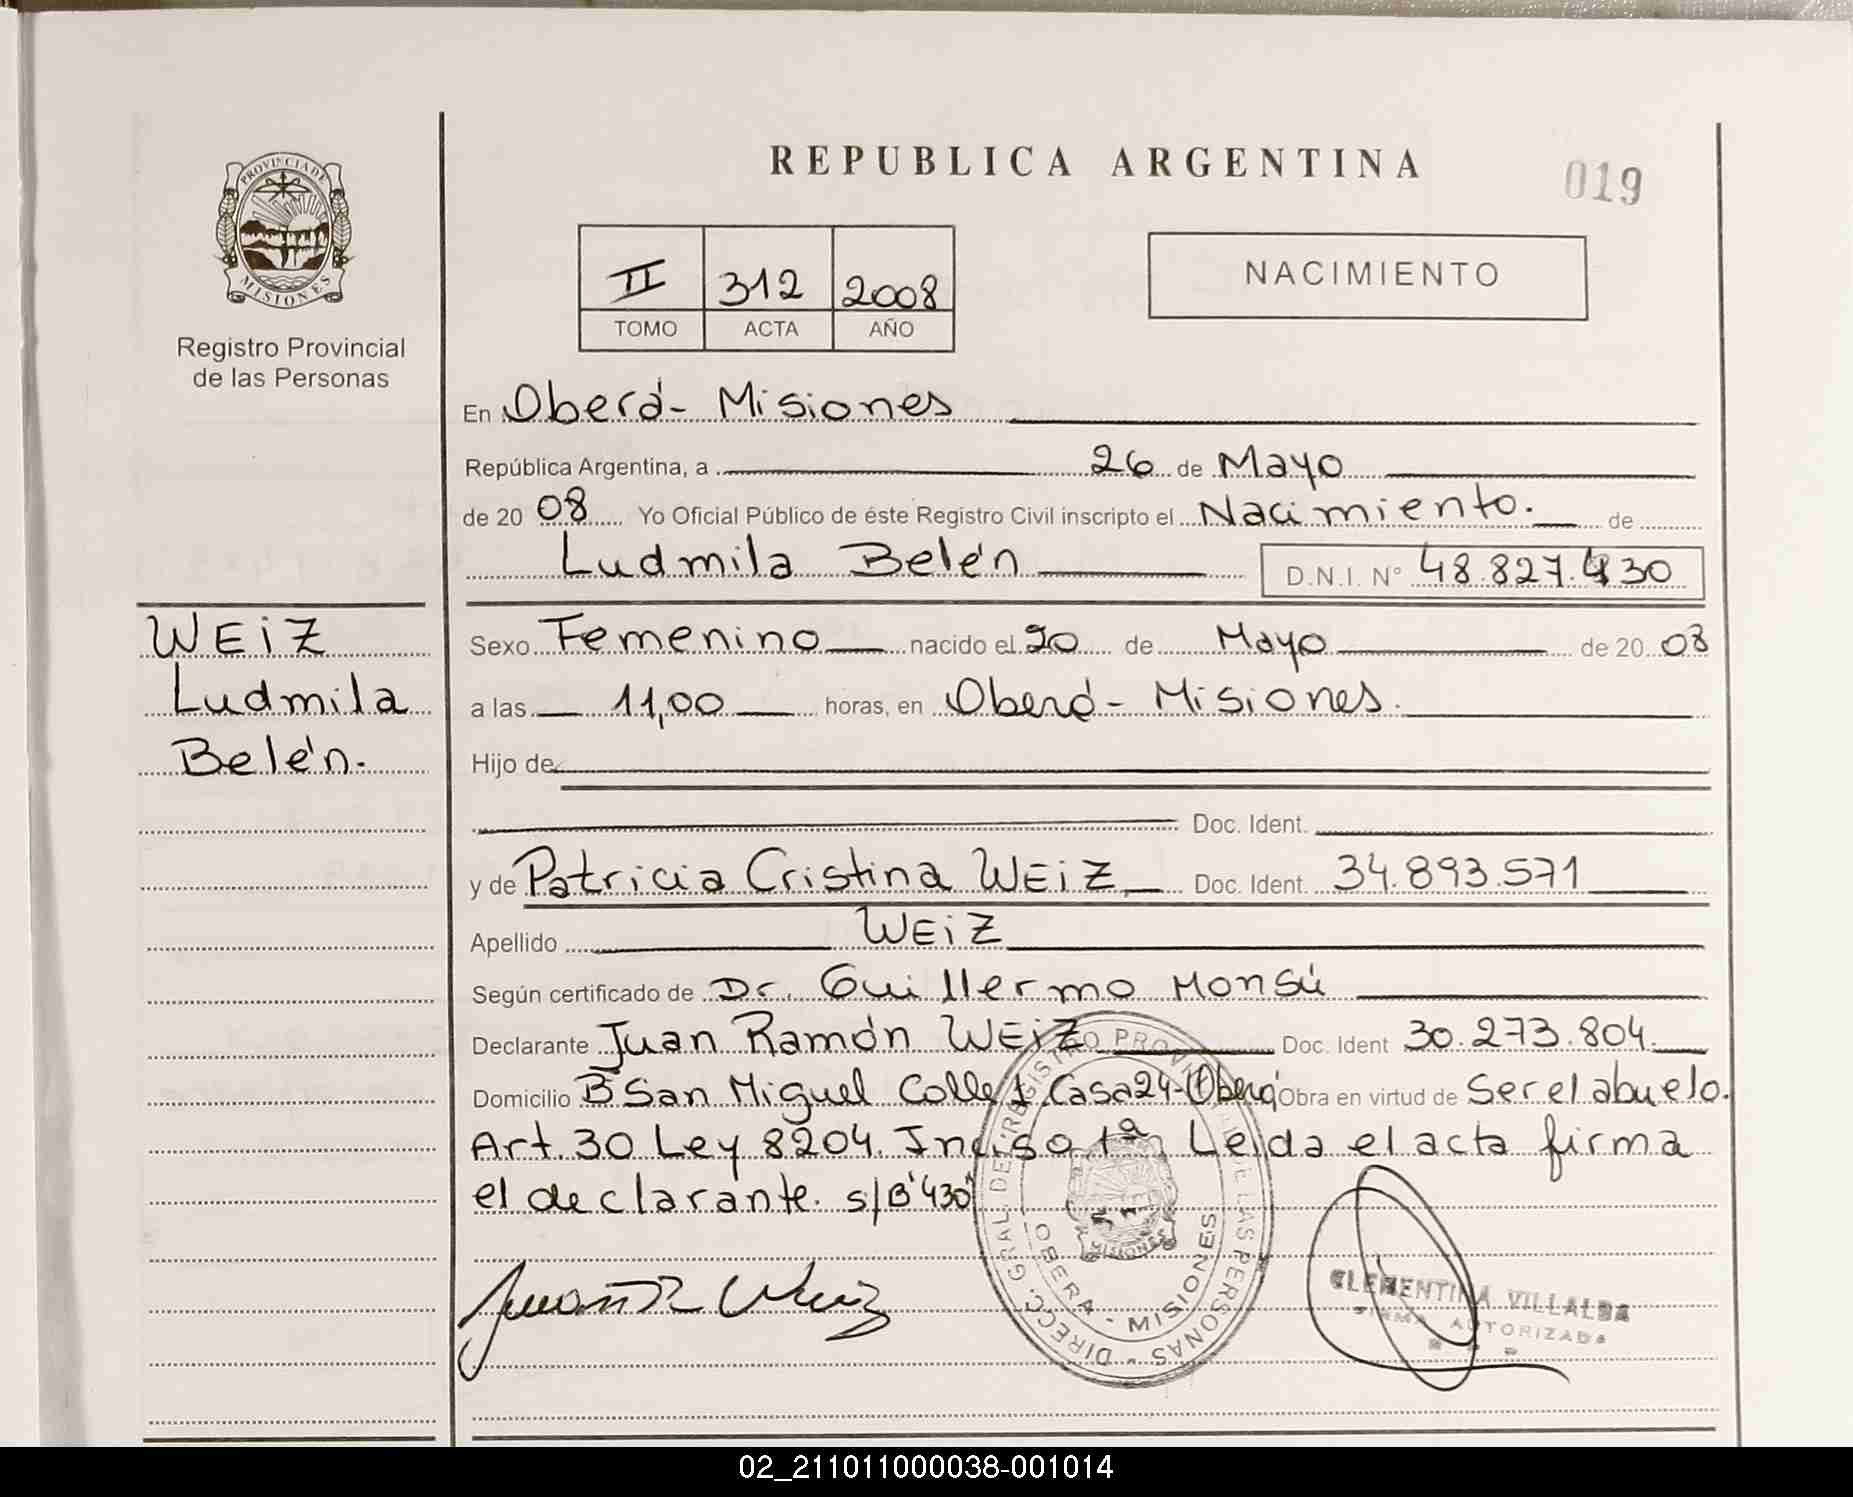 REPUBLICA ARGENTINA
019
PROVINCIA DE
MISIONES
Registro Provincial
de las Personas
II 312 2008
TOMO ACTA AÑO
NACIMIENTO
En Oberá - Misiones
República Argentina, a 26 de Mayo
de 20 08 Yo Oficial Público de éste Registro Civil inscripto el Nacimiento. de
Ludmila Belén D.N.I. Nº 48.827.430
WEiZ
Ludmila
Belén.
Sexo Femenino nacido el 20 de Mayo de 20 08
a las 11,00 horas, en Oberá - Misiones.
Hijo de
Doc. Ident.
y de Patricia Cristina WEiZ Doc. Ident. 34.893.571
Apellido WEiZ
Según certificado de Dr. Guillermo Monsú
Declarante Juan Ramón WEiZ Doc. Ident 30.273.804.
Domicilio Bº San Miguel Calle 1 Casa 24-Oberá Obra en virtud de Ser el abuelo.
Art. 30 Ley 8204. Inciso 1ª Leida el acta firma
el declarante. s/B "430"
Juan R Weiz
DIRECC. GRAL. DE REGISTRO PROVINCIAL DE LAS PERSONAS -
OBERA - MISIONES
MISIONES
CLEMENTINA VILLALBA
FIRMA AUTORIZADA
02_211011000038-001014